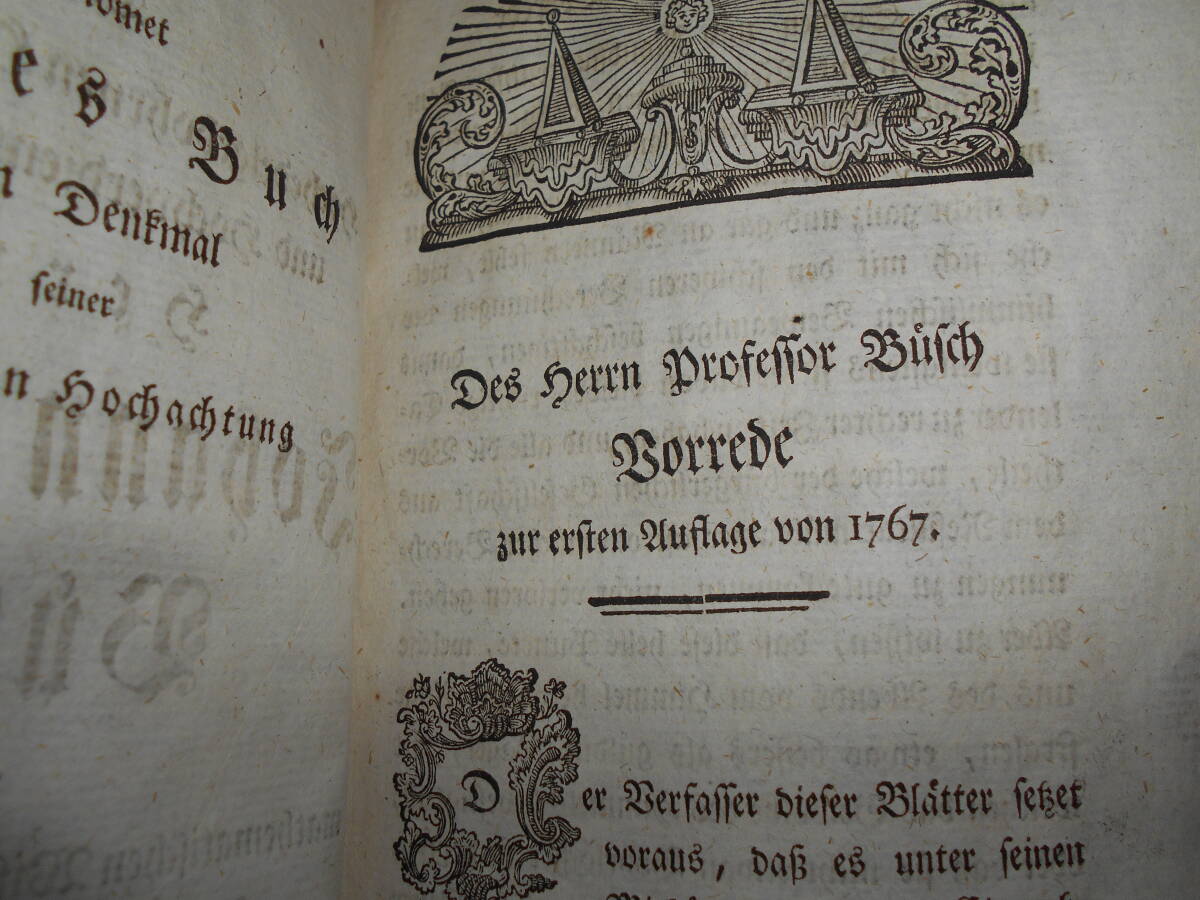 es Buch
Denkmal
seiner
Hochachtung
Des Herrn Professor Büsch
Vorrede
zur ersten Auflage von 1767.
Der Verfasser dieser Blätter setzet
voraus, daß es unter seinen